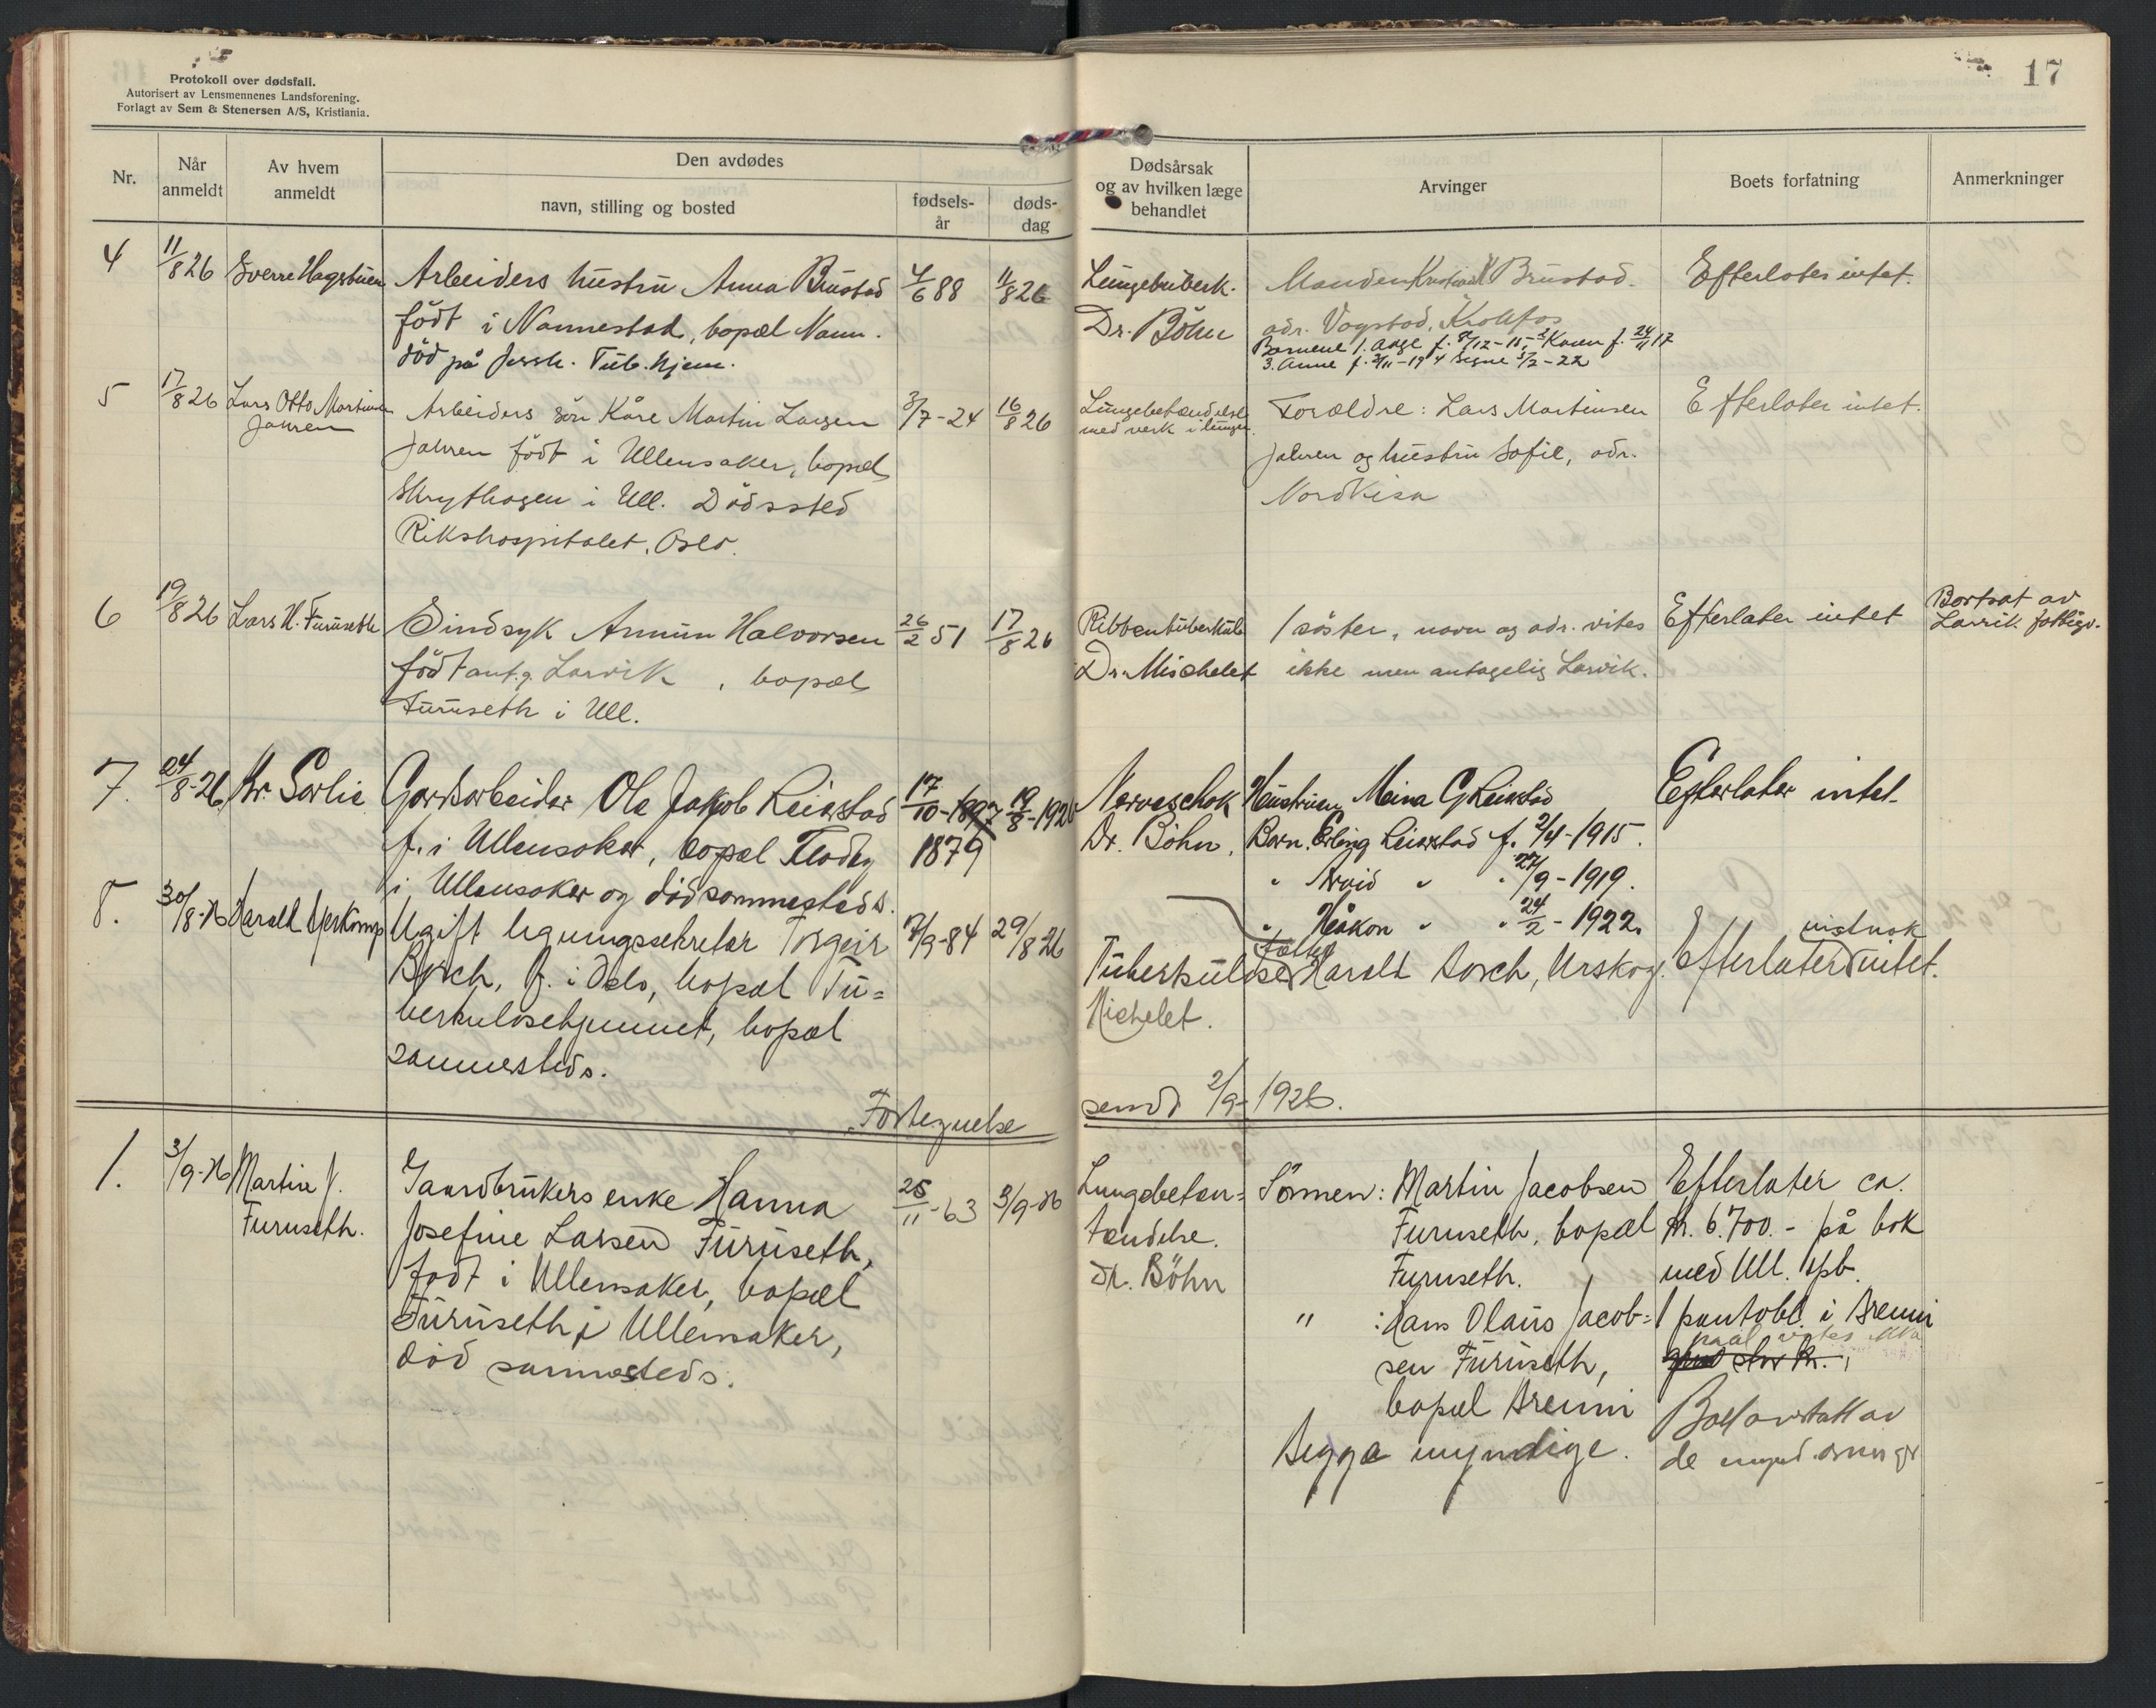 Protokoll over dødsfall.
Autorisert av Lensmennenes Landsforening.
Forlagt av Sem & Stenersen A/S, Kristiania.
17
Nr.
Når anmeldt
Av hvem anmeldt
Den avdødes
navn, stilling og bosted
fødsels-år
døds-dag
Dødsårsak og av hvilken læge behandlet
Arvinger
Boets forfatning
Anmerkninger
4
11/8 26
Sverre Hagstuen
Arbeiders hustru Anna Brustad
født i Nannestad, bopæl Nann.
død på Jessh. Tub. hjem.
4/6 88
11/8 26
Lungetuberk.
Dr. Böhn
Manden Kristian Brustad.
adr. Vogstad, Krokfos
Barnene 1. Aage f. /12-15, 2 Karen f. 24/11 17
3. Anne f. 2/11-19 4 Signe 3/2-22
Efterlater intet.
5
17/8 26
Lars Otto Martinsen
Jahren
Arbeiders søn Kåre Martin Larsen
Jahren født i Ullensaker, bopæl
i Ull. Dødssted
Rikshospitalet, Oslo.
3/7-24
16/8 26
Lungebetændelse
med verk i lungen.
Forældre: Lars Martinsen
Jahren og hustru Sofie, adr.
Nordkisa
Efterlater intet.
6
19/8 26
Lars H. Furuseth
Sindsyk Annun Halvorsen
født ant.g. Larvik, bopæl
Furuseth i Ull.
26/2 51
17/8 26
Ribbentuberkul
Dr. Michelet
1 søster, navn og adr. vites
ikke men antagelig Larvik.
Efterlater intet
Bortsat av
Larvik fattigv.
7.
24/8-26
Kr. Sørlie
Gardsarbeider Ola Jakob Leirstad
f. i Ullensaker, bopæl Flodby
i Ullensaker og død sammesteds.
17/10-1897
1879
19/8-1926
Nerveschok
Dr. Böhn.
Hustruen Meina G Leirstad
Barn. Erling Leirstad f. 2/4-1915.
" Arvid " " 27/9-1919.
" Håkon " " 24/2-1922.
Efterlater intet.
8.
30/8-26
Harald
Ugift ligningssekretær Torgeir
Borch, f. i Oslo, bopæl Tu=
berkulosehjemmet, bopæl
sammesteds.
17/9-84
29/8-26
Tuberkulose
Michelet.
fætter
Harald Borch, Urskog.
vistnok
Efterlater intet.
Fortegnelse
sendt 2/9-1926.
1.
3/9-26
Martin J.
Furuseth.
Gaardbrukers enke Hanna
Josefine Larsen Furuseth,
født i Ullensaker, bopæl
Furuseth i Ullensaker,
død sammesteds.
25/11-63
3/9-26
Lungebetæn=
tændelse.
Dr. Böhn
Sønnen: Martin Jacobsen
Furuseth, bopæl
Furuseth.
" : Hans Olaus Jacob=
sen Furuseth,
bopæl Brenni
Begge myndige.
Efterlater ca.
kr. 6.700.- på bok
med Ull. spb.
1 pantobl. i Brenni
Boet overtatt av
de mynd. arvinger